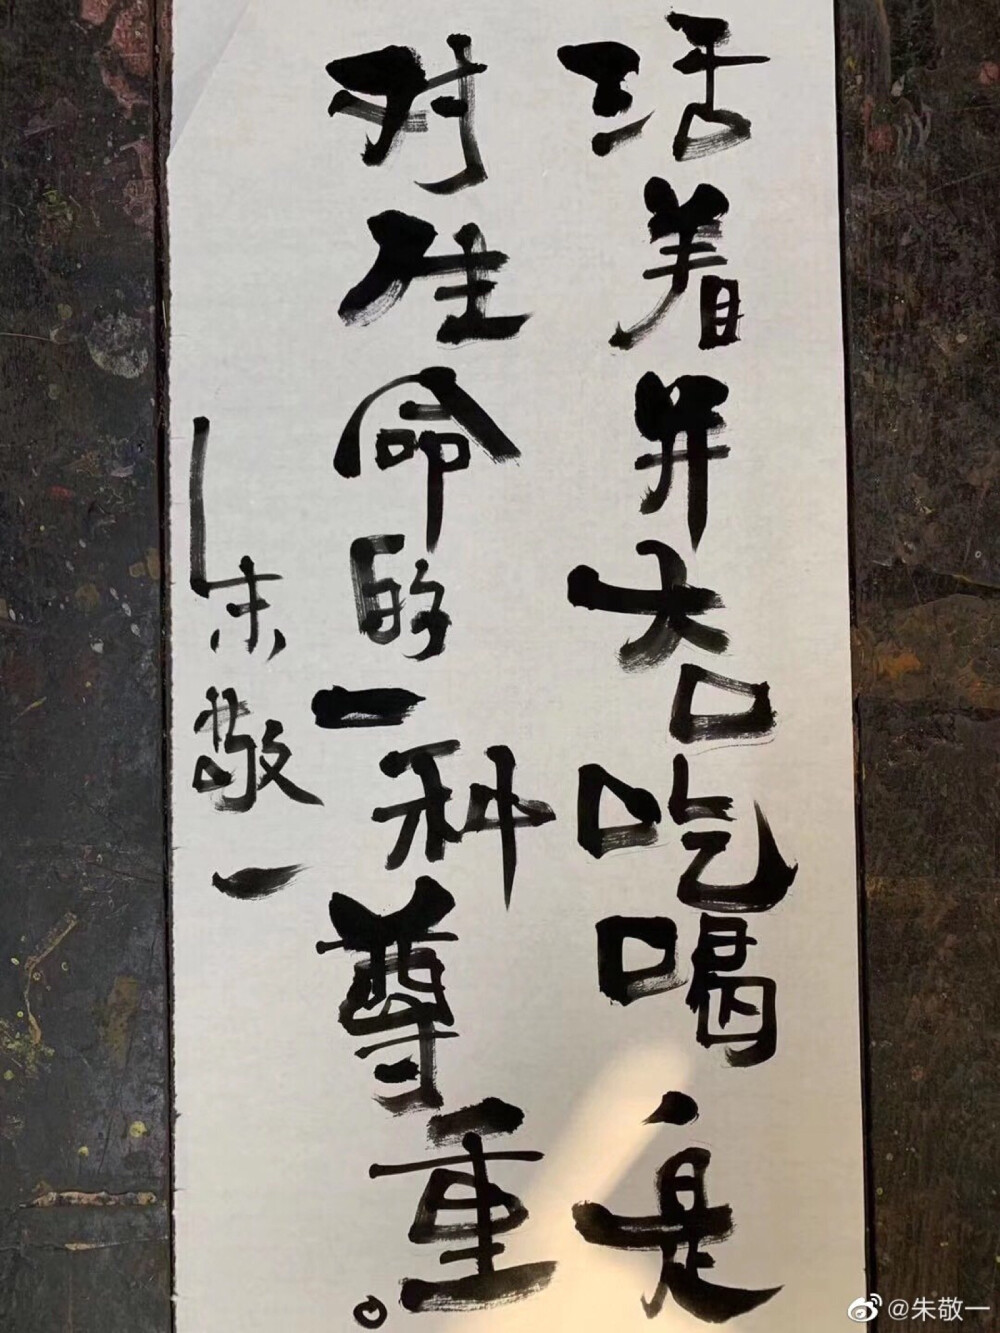 活着并大口吃喝、是
对生命的一种尊重。
朱敬一
@朱敬一